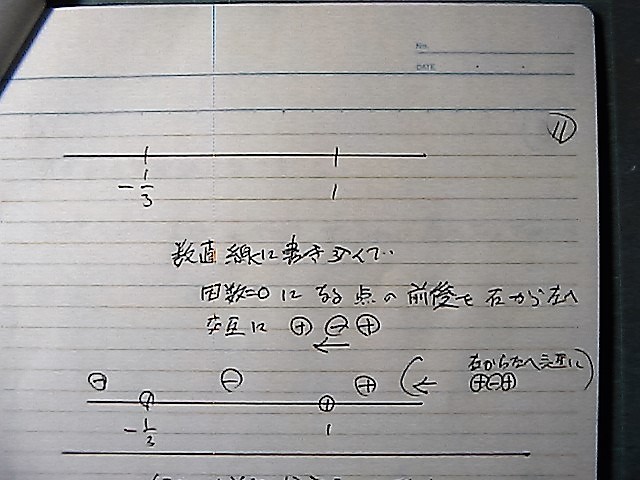 No.
DATE
⑪
-1/3 1
数直線に書き
因数=0になる点の前後を右から左へ
交互に ⊕ ⊖ ⊕
←
⊖ ⊕ ( ← 右から左へ交互に ⊕⊖⊕ )
-1/3 1